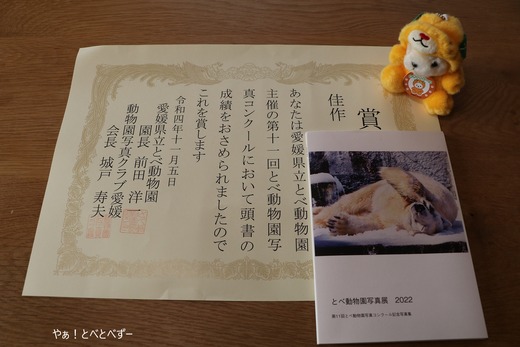 賞
佳作
あなたは愛媛県立とべ動物園
主催の第十一回とべ動物園写
真コンクールにおいて頭書の
成績をおさめられましたので
これを賞します
令和四年十一月五日
愛媛県立とべ動物園
園長 前田 洋一
動物園写真クラブ愛媛
会長 城戸 寿夫
とべ動物園写真展 2022
第11回とべ動物園写真コンクール記念写真集
やぁ!とべとべずー